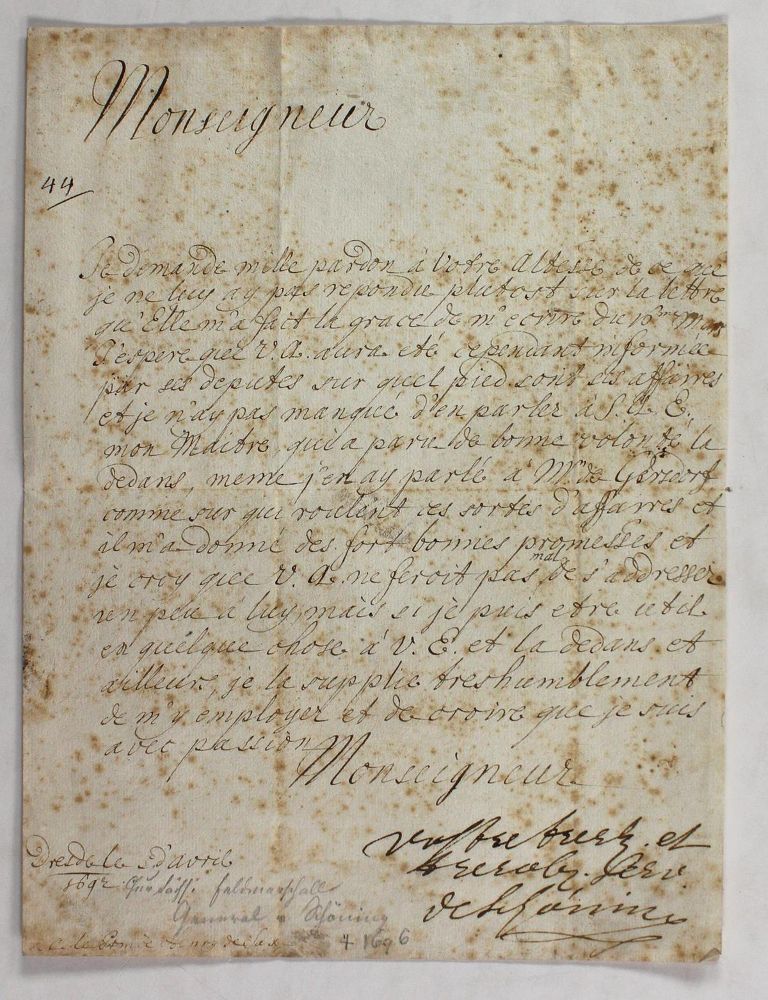 Monseigneur
44
Je demande mille pardon à Votre Altesse de ce que
je ne luy ay pas repondu plutost sur la lettre
qu'Elle m'a fait la grace de m'ecrire du 10me Mars
J'espere que V. A. aura eté cependant informée
par ses deputes sur quel pied sont ces affaires
et je n'ay pas manqué d'en parler à S. A. E.
mon Maitre, qui a paru de bonne volonté la
dedans, meme j'en ay parlé à Mr. de Gersdorf
comme sur qui roulent ces sortes d'affaires et
il m'a donné des fort bonnes promesses et
je croy que V. A. ne feroit pas mal de s'addresser
un peu à luy, mais si je puis etre util
en quelque chose à V. E. et la dedans et
ailleurs, je la supplie treshumblement
de m'y employer et de croire que je suis
avec passion
Monseigneur
vostre tresh. et
tresob. serv.
de Schöning
Dresde le d'avril
1692 Feldmarschall
General v Schöning
† 1696